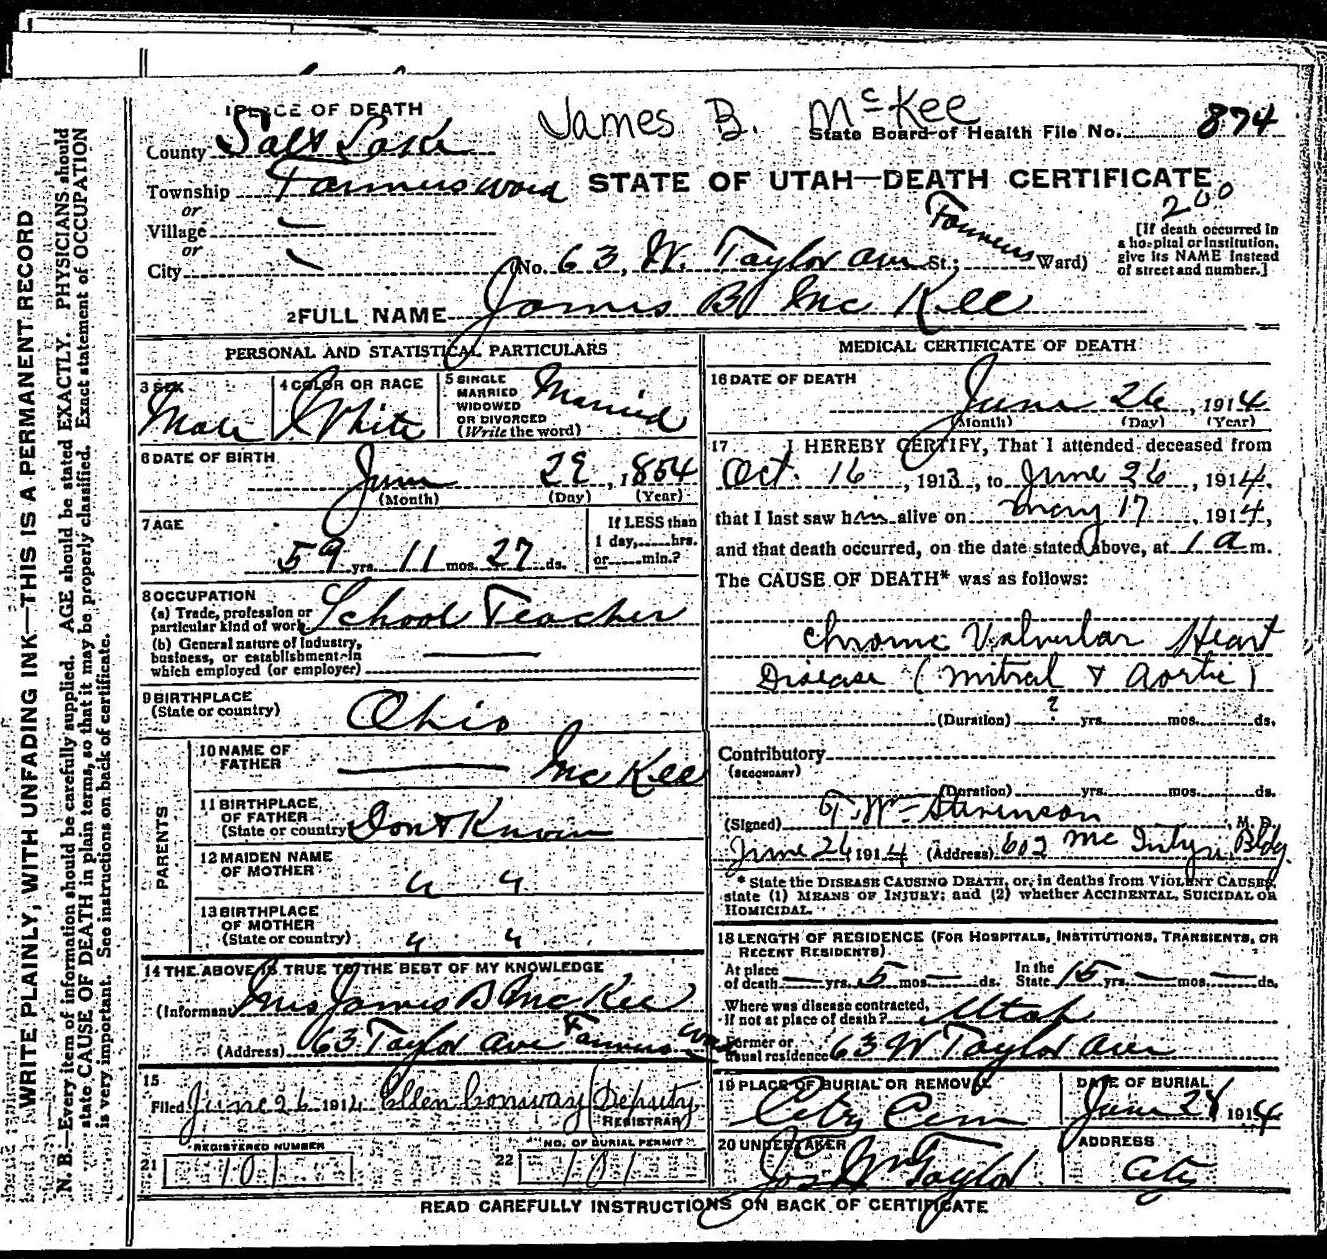 James B. McKee
1 PLACE OF DEATH
State Board of Health File No. 874
County Salt Lake
Township Farmers Ward
STATE OF UTAH—DEATH CERTIFICATE
200
or
Village
or
City
(No. 63, W. Taylor Ave St.; Farmers Ward)
[If death occurred in
a hospital or institution,
give its NAME instead
of street and number.]
2 FULL NAME James B Mc Kee
PERSONAL AND STATISTICAL PARTICULARS
3 SEX
Male
4 COLOR OR RACE
White
5 SINGLE
MARRIED
WIDOWED
OR DIVORCED
(Write the word)
Married
6 DATE OF BIRTH
June 29, 1854
(Month) (Day) (Year)
7 AGE
59 yrs. 11 mos. 27 ds.
If LESS than
1 day,......hrs.
or......min.?
8 OCCUPATION
(a) Trade, profession or
particular kind of work
School Teacher
(b) General nature of Industry,
business, or establishment in
which employed (or employer)
9 BIRTHPLACE
(State or country)
Ohio
PARENTS
10 NAME OF
FATHER
Mc Kee
11 BIRTHPLACE
OF FATHER
(State or country)
Dont Know
12 MAIDEN NAME
OF MOTHER
" "
13 BIRTHPLACE
OF MOTHER
(State or country)
" "
14 THE ABOVE IS TRUE TO THE BEST OF MY KNOWLEDGE
(Informant) Mrs James B McKee
(Address) 63 Taylor Ave Farmers Ward
15
Filed June 26 1914 Ellen Conway Deputy
REGISTRAR
21 REGISTERED NUMBER
101
22 NO. OF BURIAL PERMIT
101
MEDICAL CERTIFICATE OF DEATH
16 DATE OF DEATH
June 26, 1914
(Month) (Day) (Year)
17 I HEREBY CERTIFY, That I attended deceased from
Oct. 16, 1913, to June 26, 1914,
that I last saw him alive on May 17, 1914,
and that death occurred, on the date stated above, at 1 a m.
The CAUSE OF DEATH* was as follows:
Chronic Valvular Heart
Disease (Mitral & Aortic)
(Duration) ? yrs. mos. ds.
Contributory
(SECONDARY)
(Duration) yrs. mos. ds.
(Signed) T. W. Stevenson, M. D.
June 26 1914 (Address) 602 Mc Intyre Bldg.
* State the DISEASE CAUSING DEATH, or, in deaths from VIOLENT CAUSES,
state (1) MEANS OF INJURY; and (2) whether ACCIDENTAL, SUICIDAL OR
HOMICIDAL.
18 LENGTH OF RESIDENCE (FOR HOSPITALS, INSTITUTIONS, TRANSIENTS, OR
RECENT RESIDENTS)
At place
of death — yrs. 5 mos. — ds.
In the
State 15 yrs. — mos. — ds.
Where was disease contracted,
If not at place of death? Utah
Former or
usual residence 63 W Taylor Ave
19 PLACE OF BURIAL OR REMOVAL
City Cem
DATE OF BURIAL
June 28 1914
20 UNDERTAKER
Jos Wm Taylor
ADDRESS
City
READ CAREFULLY INSTRUCTIONS ON BACK OF CERTIFICATE
WRITE PLAINLY, WITH UNFADING INK—THIS IS A PERMANENT RECORD
N. B.—Every item of information should be carefully supplied. AGE should be stated EXACTLY. PHYSICIANS should
state CAUSE OF DEATH in plain terms, so that it may be properly classified. Exact statement of OCCUPATION
is very important. See instructions on back of certificate.